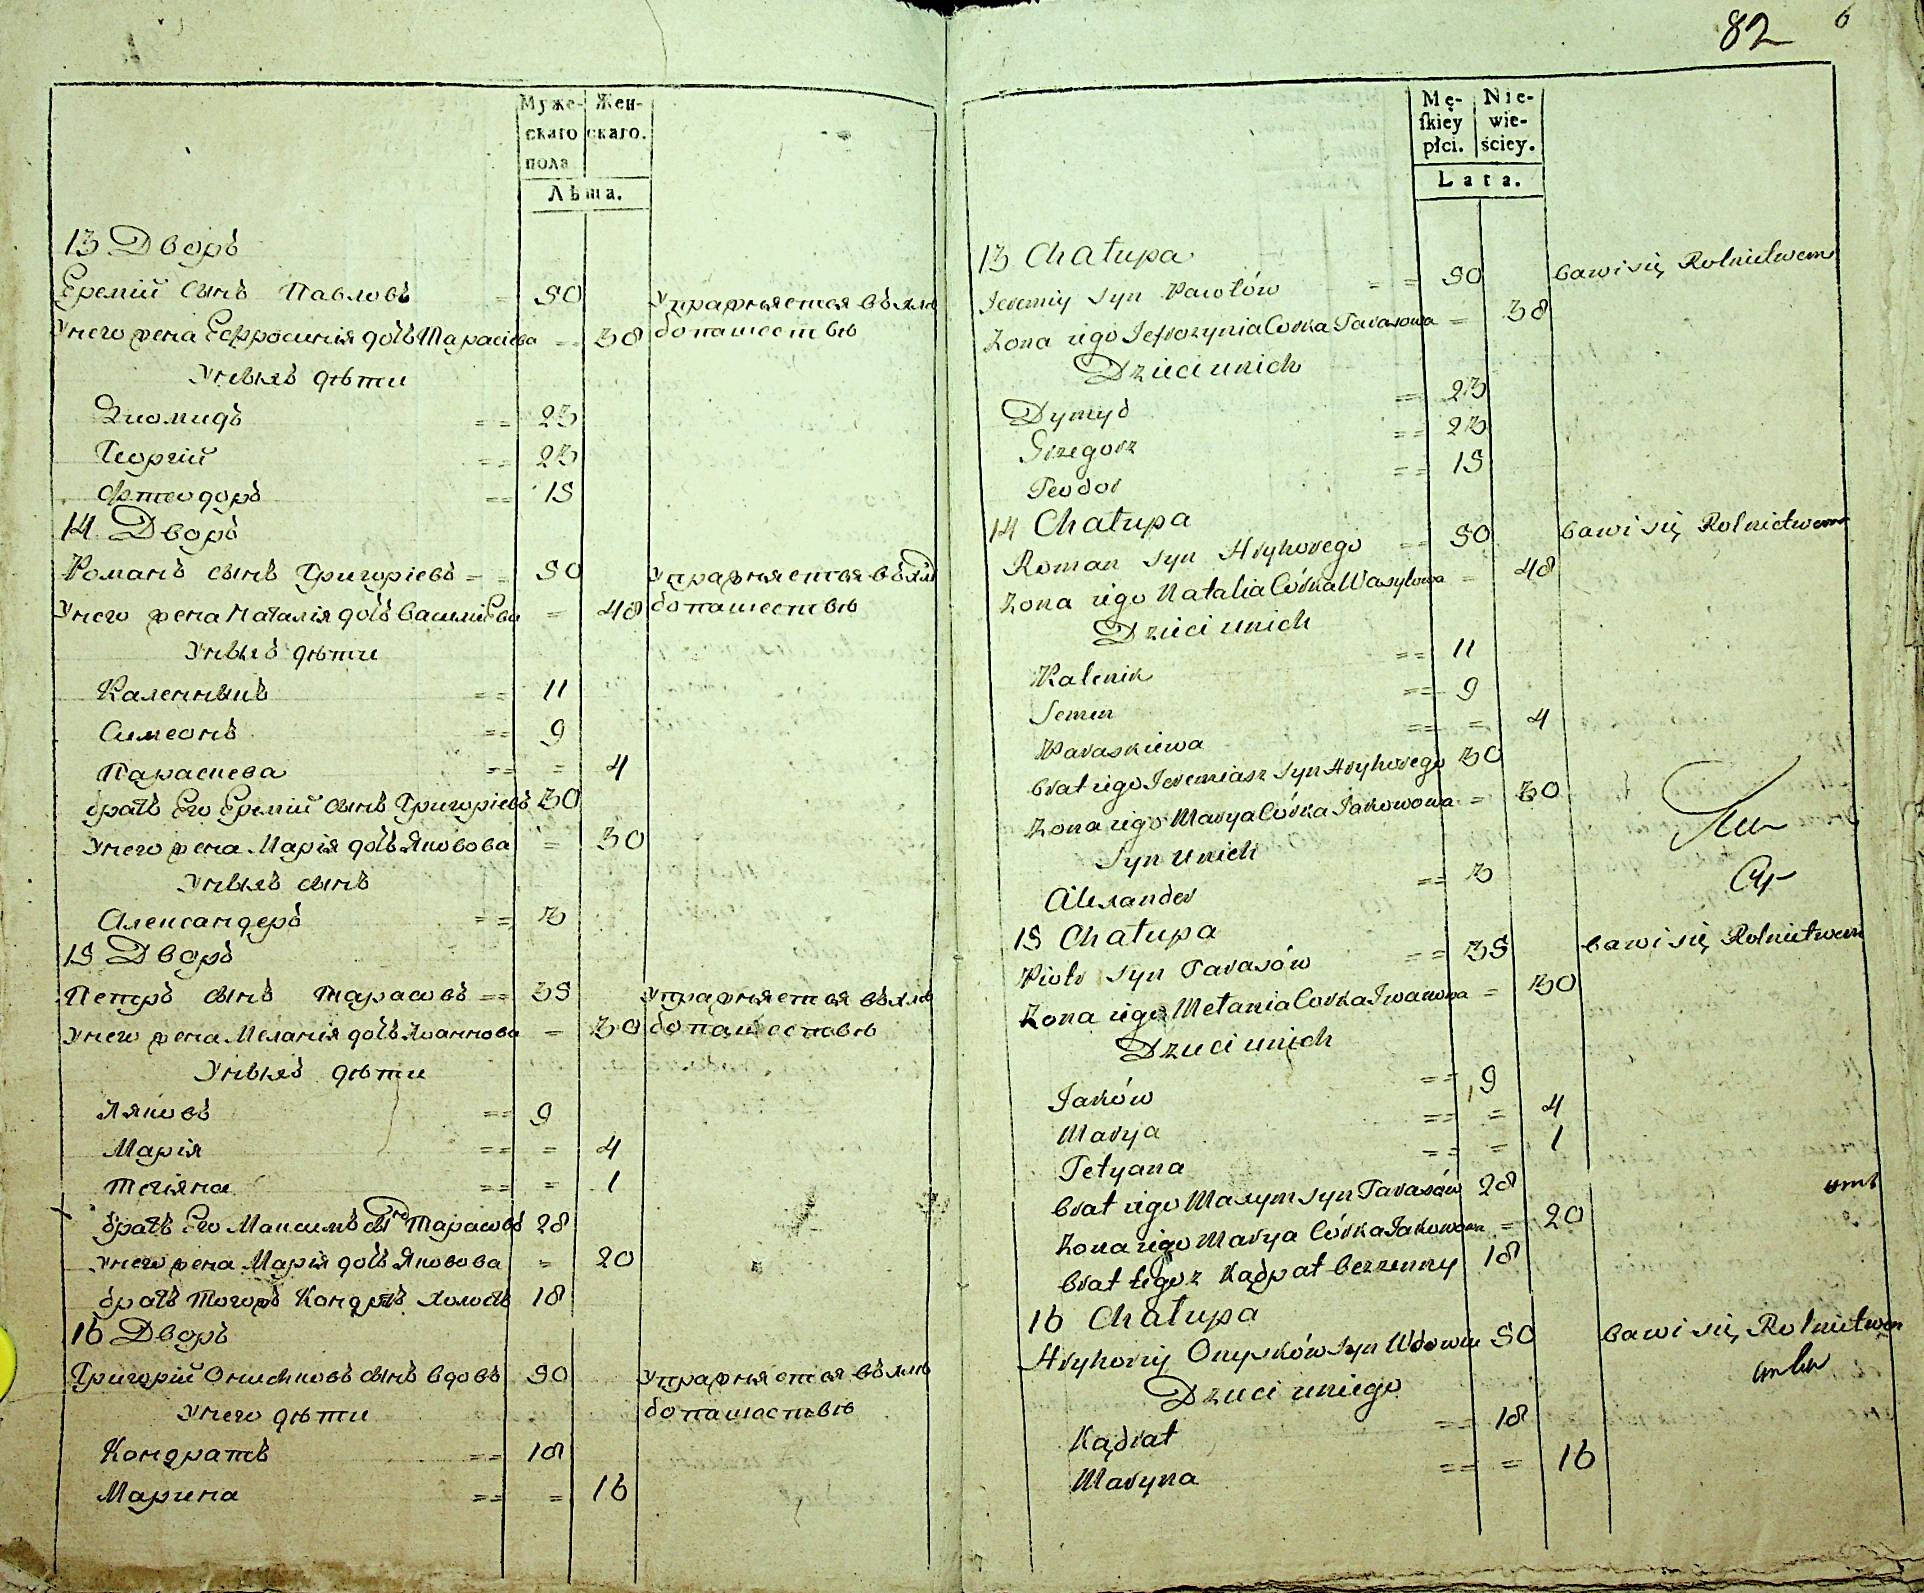 82 6
Муже- Жен-
скаго скаго.
пола
Лѣта.
13 Дворъ
Еремій сынъ Павловъ = 50 Упражняется въ хлѣ
Унего жена Ефросинія дочь Тарасіева = 38 бопашествѣ
Унихъ дѣти
Диомидъ = = 23
Георгій = = 23
Фтеодоръ = = 15
14 Дворъ
Романъ сынъ Григоріевъ = = 50 Упражняется въ хлѣ
Унего жена Наталія дочь Василіева = 48 бопашествѣ
Унихъ дѣти
Каленныкъ = = 11
Симеонъ == 9
Параскева == = 4
братъ Его Еремій сынъ Григоріевъ 30
Унего жена Марія дочь Яковова = 30
Унихъ сынъ
Александеръ == 3
15 Дворъ
Петръ сынъ Тарасовъ == 35 Упражняется въ хлѣ
Унего жена Меланія дочь Иоаннова = 30 бопашествѣ
Унихъ дѣти
Ияковъ == 9
Марія == = 4
Тетіяна == = 1
братъ Его Максимъ сынъ Тарасовъ 28
Унего жена Марія дочь Яковова = 20
братъ Тогожъ Кондратъ холостъ 18
16 Дворъ
Григорій Онисковъ сынъ вдовъ 50 Упражняется въ хлѣ
Унего дѣти бопашествѣ
Кондратъ == 18
Марина == = 16
Mę- Nie-
ſkiey wie-
płci. ściey.
Lata.
13 Chałupa
Jeremiy syn Pawłów = = 50 bawi się Rolnictwem
Zona iego Jefrozynia Corka Tarasowa = 38
Dzieci unich
Dymyd == 23
Grzegorz == 23
Teodor == 15
14 Chałupa
Roman syn Hryhorego == 50 bawi się Rolnictwem
Zona iego Natalia Córka Wasylowa = 48
Dzieci unich
Kalenik == 11
Semen == 9
Paraskiewa == = 4
brat iego Jeremiasz syn Hryhorego 30
Zona iego Marya Córka Jakowowa = 30
Syn unich
Alexander == 3
15 Chałupa
Piotr syn Tarasów == 35 bawi się Rolnictwem
Zona iego Mełania Corka Iwanowa = 30
Dzieci unich
Jaków == 9
Marya == = 4
Tetyana == = 1
brat iego Maxym syn Tarasów 28
Zona iego Marya Córka Jakowowa = 20
brat tegoz Kądrat bezzenny 18
16 Chałupa
Hryhorey Onysków syn Wdowiec 50 bawi się Rolnictwem
Dzieci uniego
Kądrat == 18
Maryna == = 16